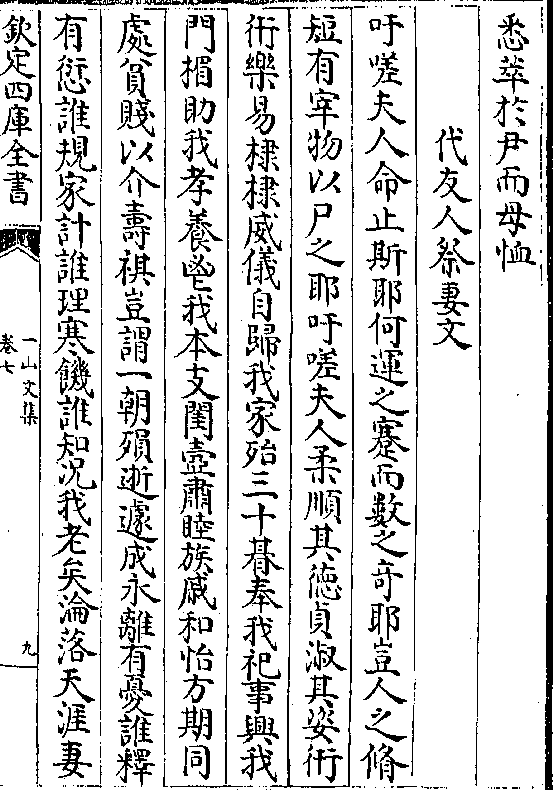 悉萃於尹而毋恤
代友人祭妻文
吁嗟夫人命止斯耶何運之蹇而數之奇耶豈人之脩
短有宰物以尸之耶吁嗟夫人柔順其徳貞淑其姿衎
衎樂易棣棣威儀自歸我家殆三十朞奉我祀事興我
門楣助我孝養鬯我本支閨壼肅睦族戚和怡方期同
處貧賤以介壽祺豈謂一朝殞逝遽成永離有憂誰釋
有愆誰規家計誰理寒饑誰知况我老矣淪落天涯妻
欽定四庫全書
一山文集
卷七
九